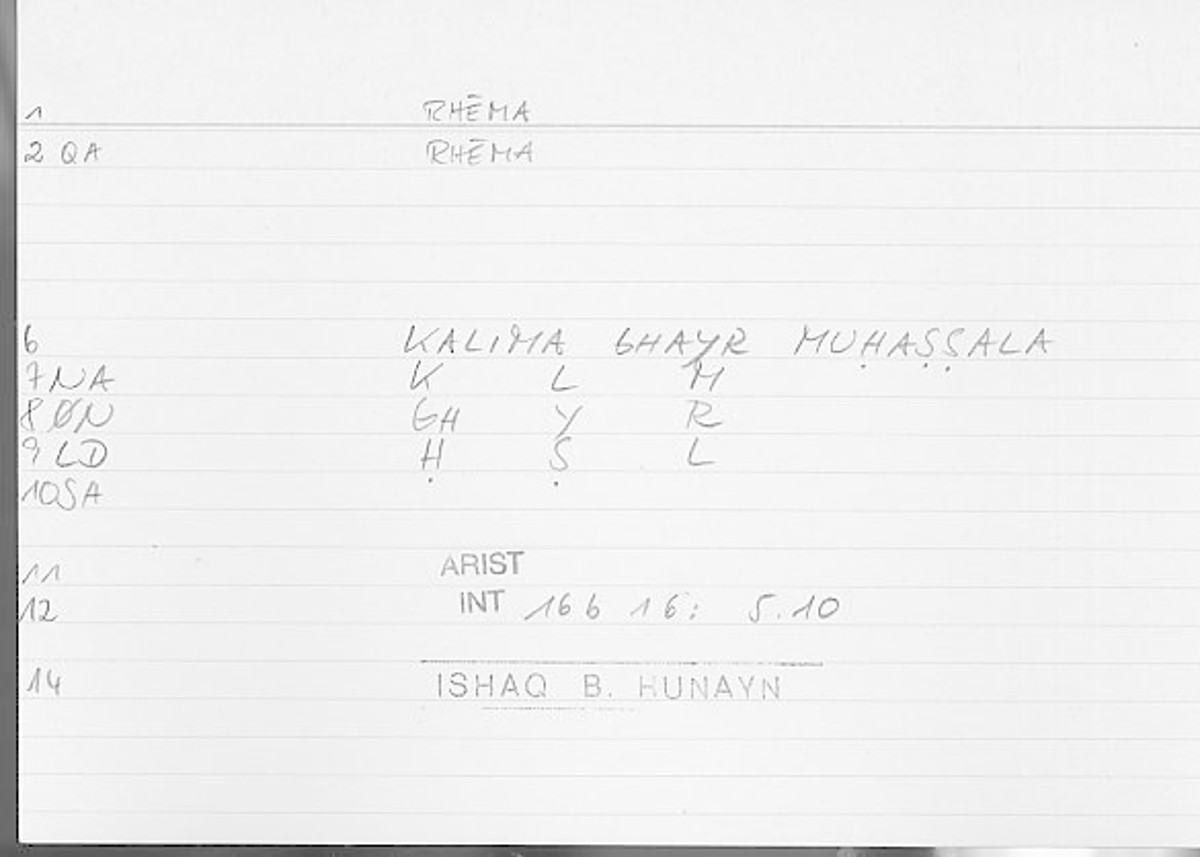 1 RHĒMA
2 QA RHĒMA
6 KALIMA GHAYR MUḤAṢṢALA
7 NA K L M
8 ØN GH Y R
9 LD Ḥ Ṣ L
10 SA
11 ARIST
12 INT 16b 16: 5.10
14 ISHAQ B. HUNAYN